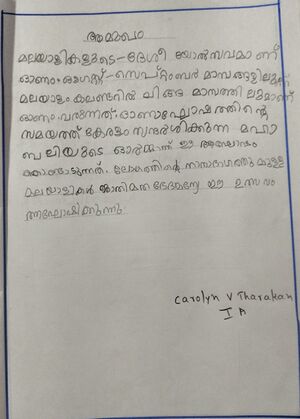 ആമുഖം
മലയാളികളുടെ ദേശീയോൽസവമാണ്
ഓണം. ഓഗസ്റ്റ് - സെപ്റ്റംബർ മാസങ്ങളിലും
മലയാളം കലണ്ടറിൽ ചിങ്ങ മാസത്തിലുമാണ്
ഓണം വരുന്നത്. ഓണാഘോഷത്തിന്റെ
സമയത്ത് കേരളം സന്ദർശിക്കുന്ന മഹാ
ബലിയുടെ ഓർമ്മയ്ക്ക് ഈ ആഘോഷം
കൊണ്ടാടുന്നത്. ലോകത്തിന്റെ നാനാഭാഗത്തുമുള്ള
മലയാളികൾ ജാതിമത ഭേദമന്യേ ഈ ഉത്സവം
ആഘോഷിക്കുന്നു.
Carolyn V Tharakan
I A